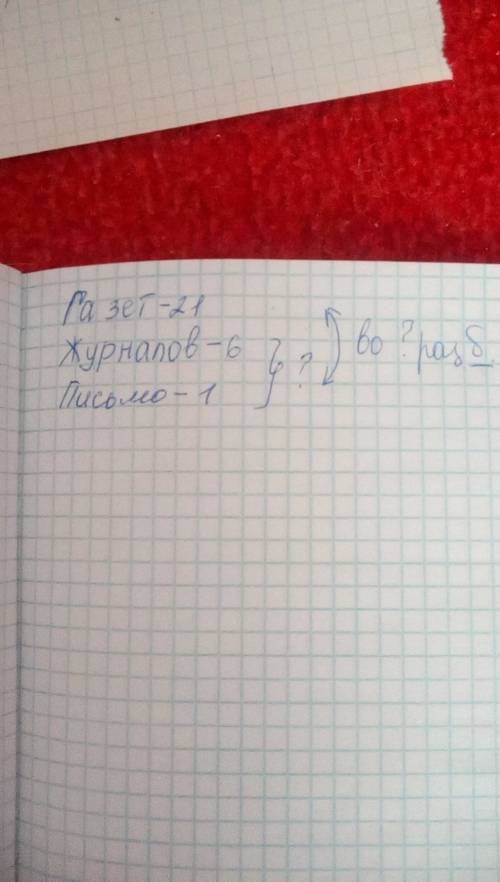 Газет - 21
Журналов - 6 } ? во ? раз б
Письмо - 1